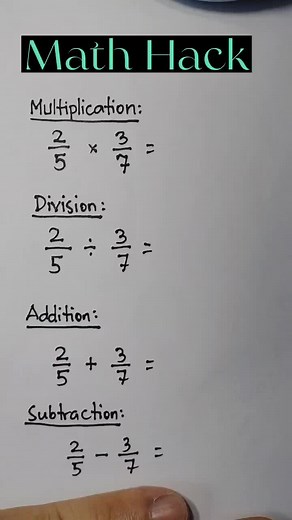 Math Hack
Multiplication:
2/5 × 3/7 =
Division:
2/5 ÷ 3/7 =
Addition:
2/5 + 3/7 =
Subtraction:
2/5 − 3/7 =